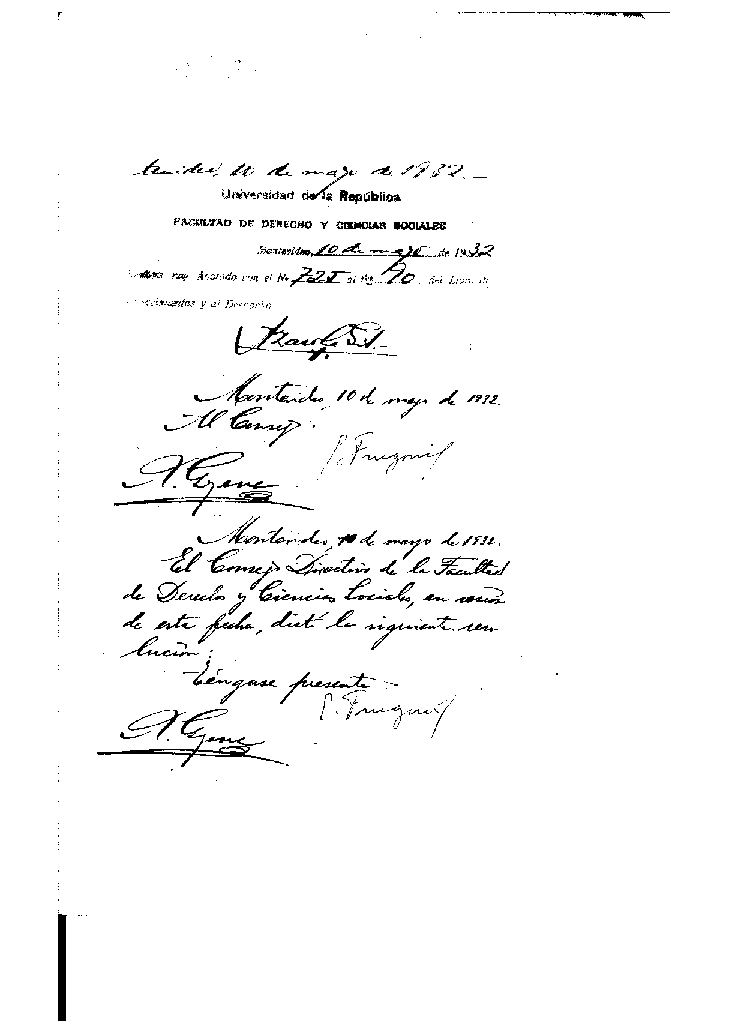 10 de mayo de 1932.—
Universidad de la República
FACULTAD DE DERECHO Y CIENCIAS SOCIALES
Montevideo, 10 de mayo de 1932
hoy. Anotado con el No 725 al fo. 90 del Libro de
y al Despacho
Montevideo, 10 de mayo de 1932.
Al Consejo.
Frugoni
Montevideo, 10 de mayo de 1932.
El Consejo Directivo de la Facultad
de Derecho y Ciencias Sociales, en sesión
de esta fecha, dictó la siguiente reso
lución:
Téngase presente—
Frugoni